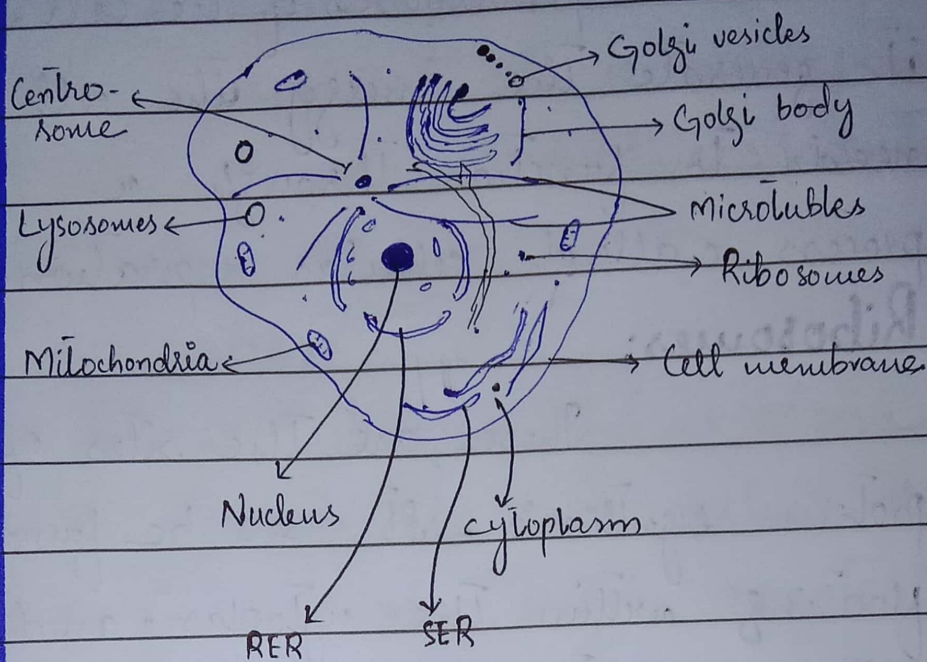 Golgi vesicles
Centro-
some
Golgi body
Lysosomes
Microtubles
Ribosomes
Mitochondria
Cell membrane
Nucleus
cytoplasm
RER
SER